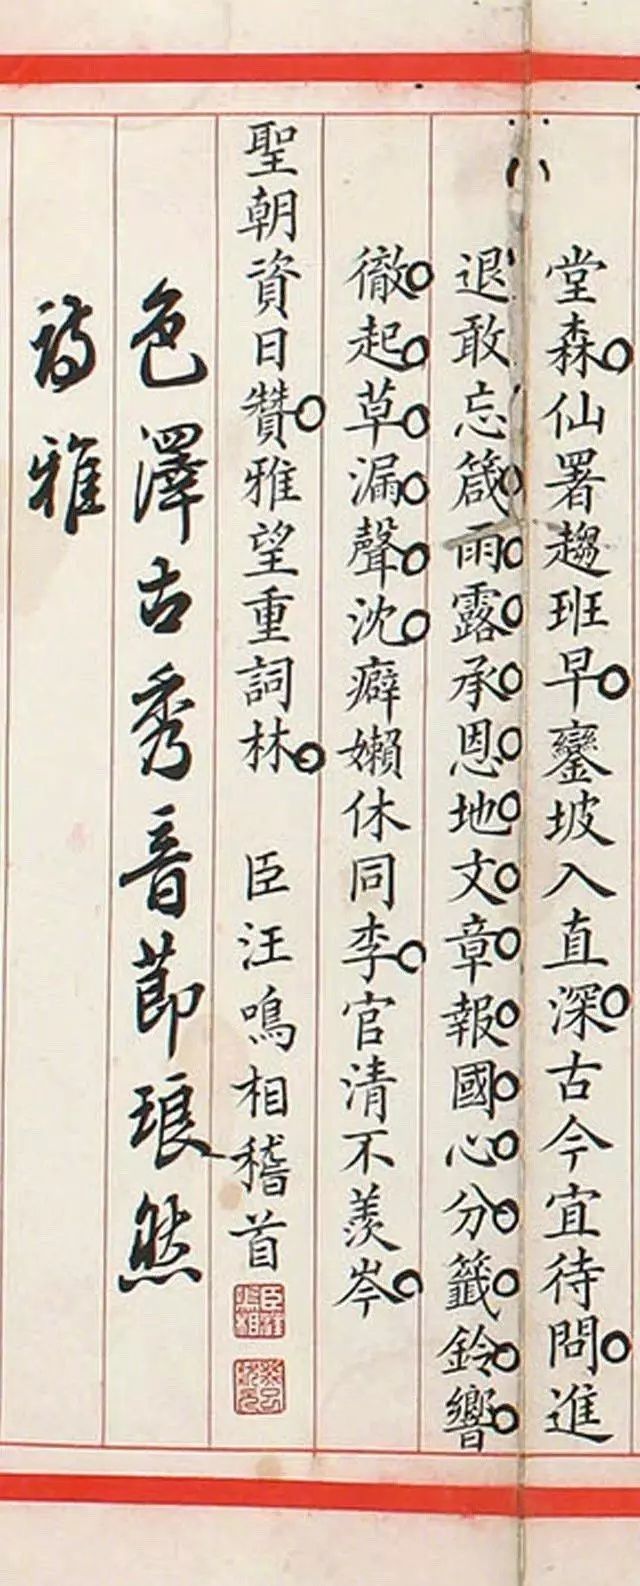 堂森仙署趨班早鑾坡入直深古今宜待問進
退敢忘箴雨露承恩地文章報國心分籤鈴響
徹起草漏聲沈癖嬾休同李官清不羨岑
聖朝資日贊雅望重詞林 臣汪鳴相稽首
色澤古秀音節琅然
詩雅